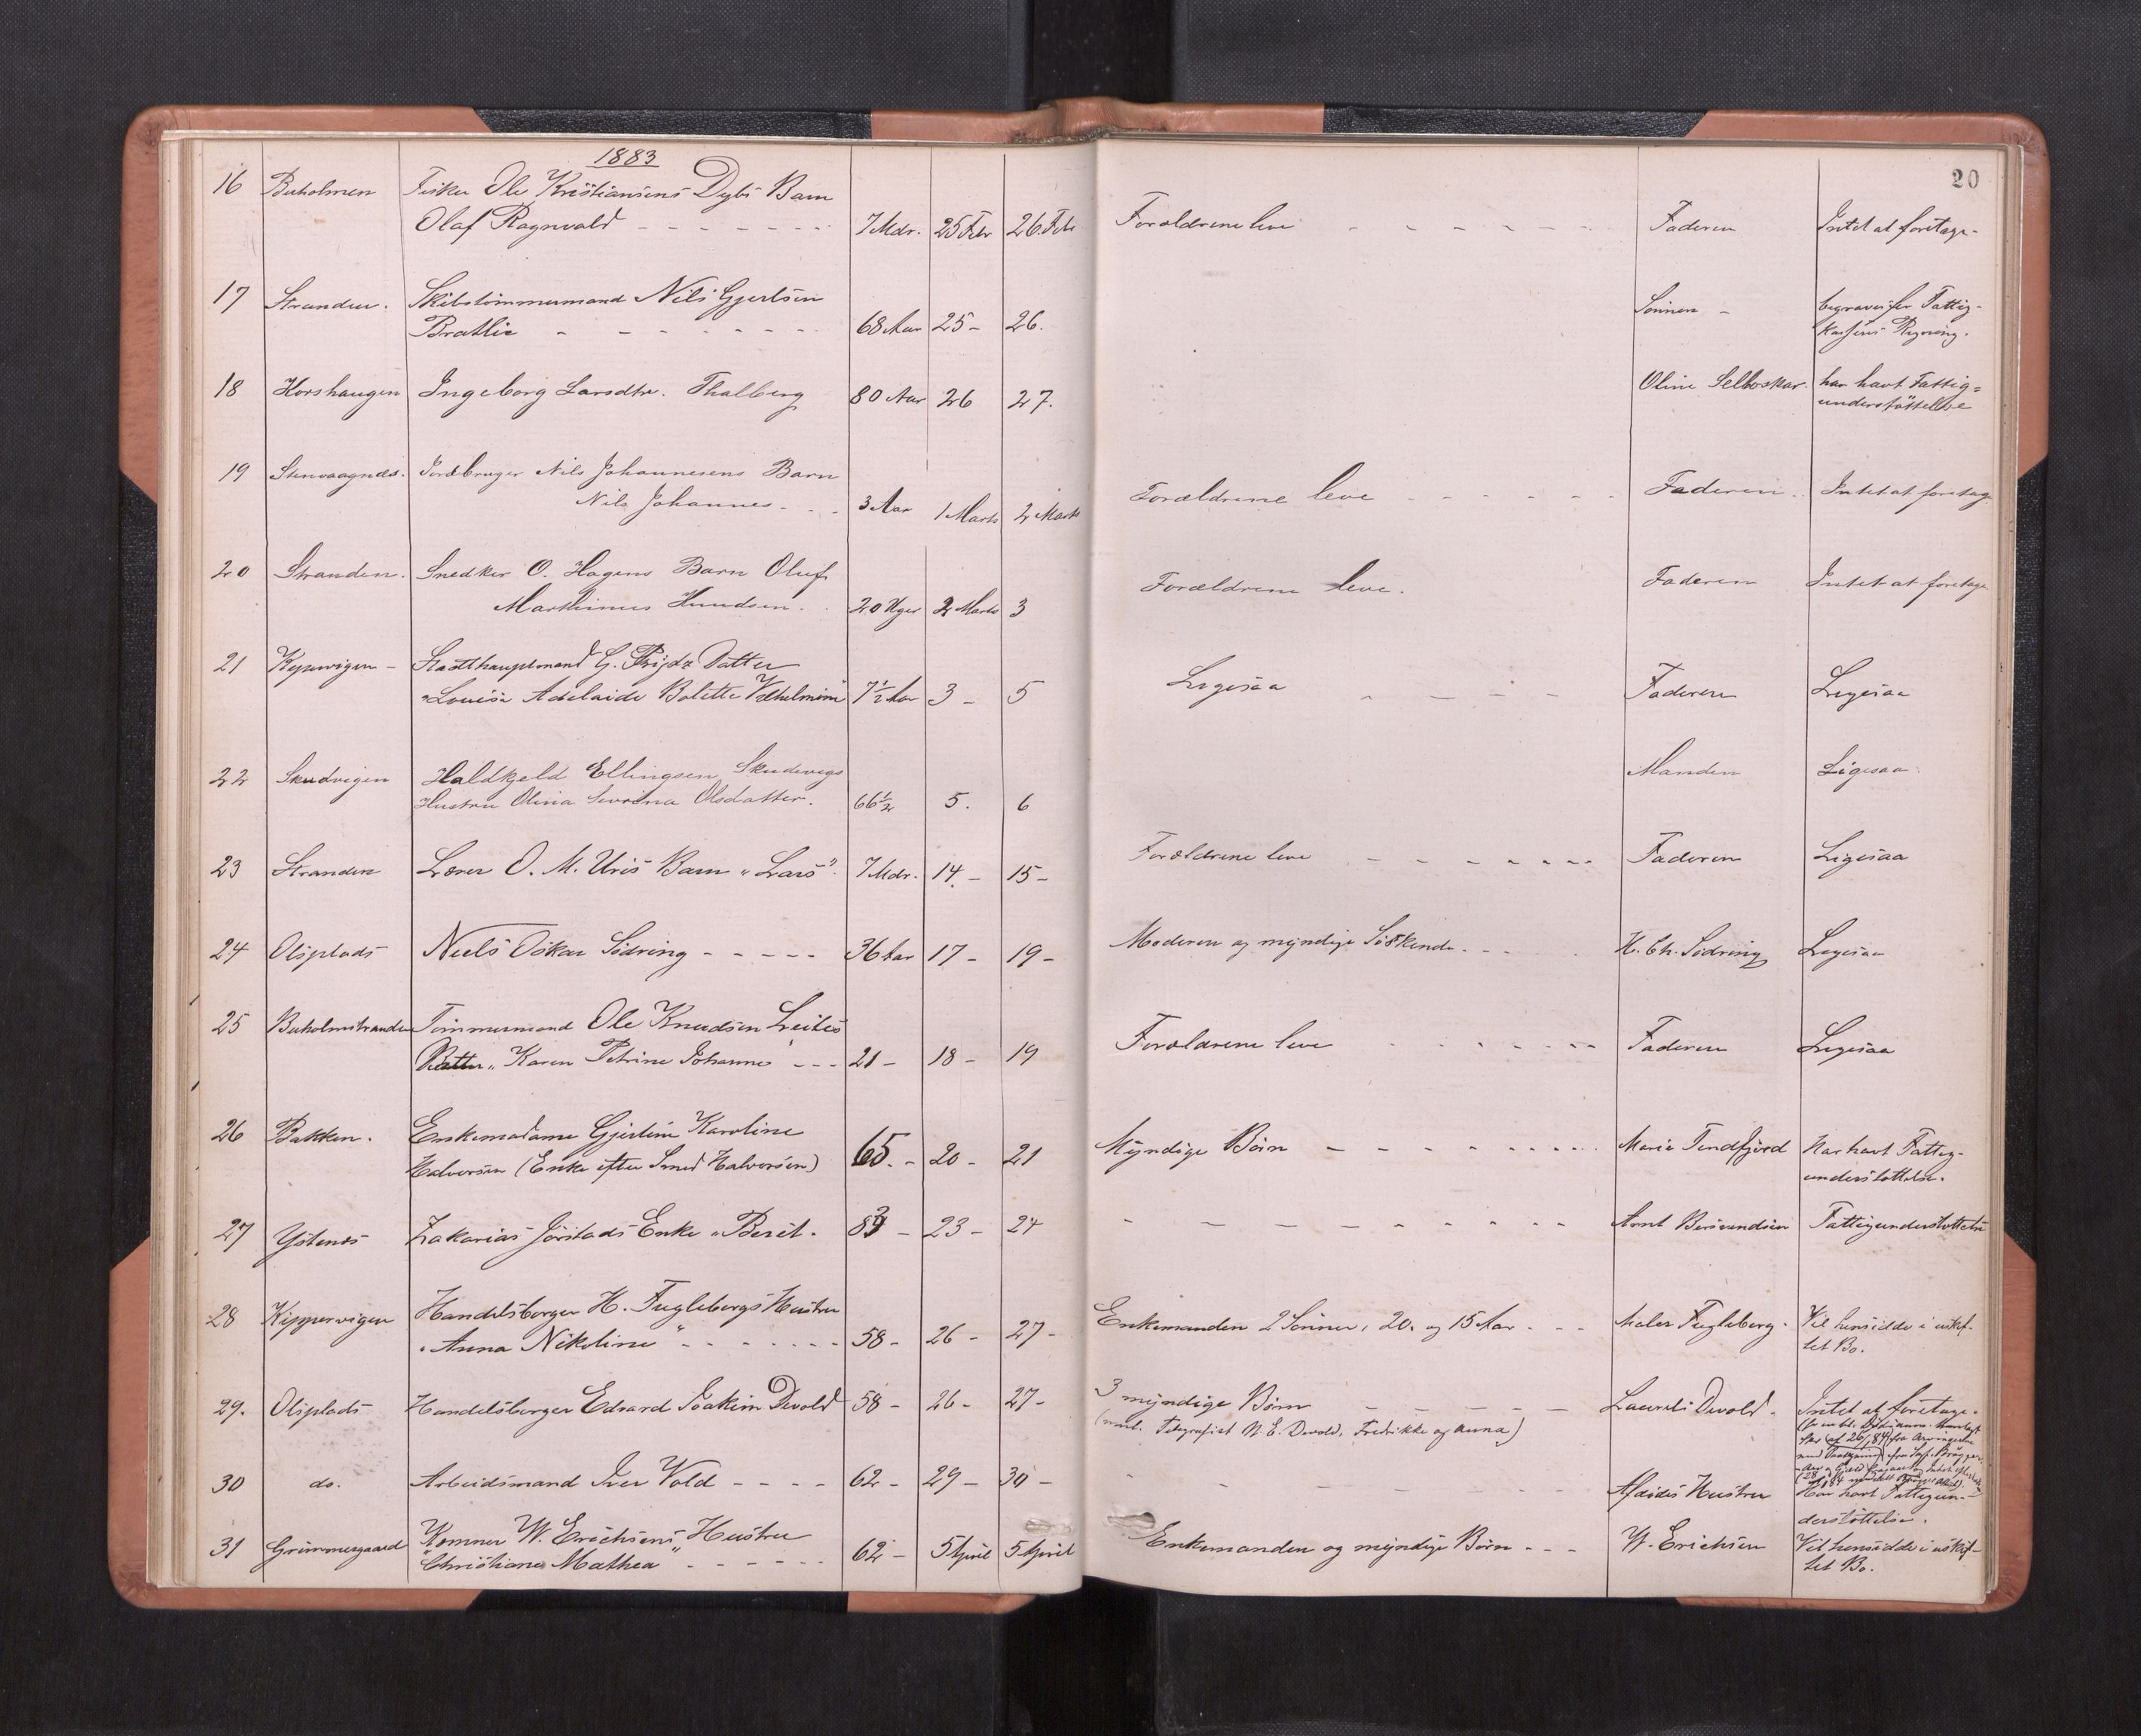 1883
20
16 Buholmen Fisker Ole Kristiansens Dybs Barn
Olaf Ragnvald - - - - - - - 7 Mdr. 25 Febr 26. Febr Forældrene leve - - - - - - Faderen Intet at foretage -
17 Stranden. Skibstømmermand Nils Gjertsen
Bratlie - - - - - - - 68 Aar 25 - 26. Sønnen - begraves for Fattig-
kassens Regning.
18 Horshaugen Ingeborg Larsdtr. Thalberg 80 Aar 26 27. Oline Selboskar. har havt Fattig=
understøttelse
19 Stenvaagnæs. Jordbruger Nils Johannesens Barn
Nils Johannes - - - 3 Aar 1 Marts 2 Marts Forældrene leve - - - - - - Faderen. Intet at foretage
20 Stranden. Snedker O. Hagens Barn Oluf
Marthinus Knudsen. 20 Uger 2 Marts 3 Forældrene leve. Faderen Intet at foretage
21 Kypervigen - G. Datter
"Louise Adelaide Bolette Vilhelmine 7½ Aar 3 - 5 Ligesaa - - - - Faderen Ligesaa
22 Skudvigen Haldkjeld Ellingsen Skudevigs
Hustru Olina Severina Olsdatter. 66½ 5. 6 Manden Ligesaa
23 Stranden Lærer O. M. Uris Barn "Lars". 7 Mdr. 14. - 15 - Forældrene leve - - - - - - - Faderen Ligesaa
24 Olsplads Niels Oskar Sidring - - - - - 36 Aar 17 - 19 - Moderen og myndige Søskende - - - H. Ch. Sidring Ligesaa
25 Buholmstranden Tømmermand Ole Knudsen Leites
Datter "Karen Petrine Johanne - - - 21 - 18 - 19 Forældrene leve - - - - - - - Faderen Ligesaa
26 Bakken. Enkemadame Gjertine Karoline
Halvorsen (Enke efter Smed Halvorsen) 65. - 20 - 21 Myndige Børn - - - - - - - Marie Tendfjord Har havt Fattig-
understøttelse.
27 Ystenes Zakarias Jørstads Enke "Berit. 83 - 23 - 24 - - - - - - - - - - Arnt Berentsen Fattigunderstøttelse
28 Kippervigen Handelsborger H. Fuglebergs Hustru
"Anna Nikoline" - - - - - - - 58 - 26 - 27 - Enkemanden 2 Sønner, 20. og 15 Aar - - - Maler Fugleberg. Vil hensidde i uskif-
tet Bo.
29. Olsplads Handelsborger Edvard Joakim Devold 58 - 26 - 27 - 3 myndige Børn - - - - - - Laurits Devold. Intet at foretage.
(nml. Telegrafist N. E. Devold, Fredrikke og Anna)
30 do. Arbeidsmand Iver Vold - - - - 62 - 29 - 30 - - - - - - - - Afdødes Hustru Har havt Fattigun-
derstøttelse.
31 Grimmergaard W. Erichsens Hustru
"Christiane Mathea" - - - - - - 62 - 5 April 5 April Enkemanden og myndige Børn - - - W. Erichsen Vil hensidde i uskif-
tet Bo.